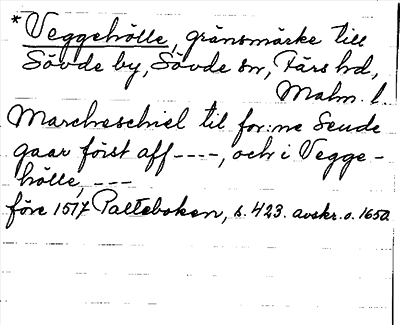 *Veggehölle, gränsmärke till
Sövde by, Sövde sn, Färs hd,
Malm. l.
Marcheschiel til for:ne Seude
gaar först aff ----, och i Vegge-
hölle, ---
före 1517 Palteboken, s. 423. avskr. o. 1650.